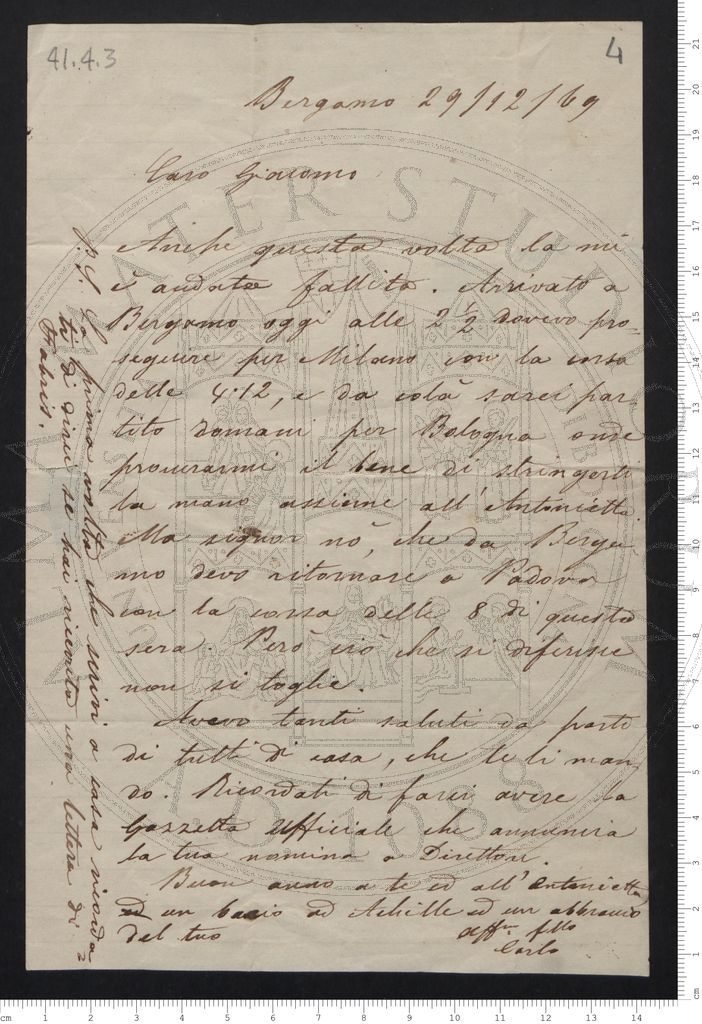 41.4.3
4
Bergamo 29/12/69
Caro Giacomo
Anche questa volta la mi
è andata fallita. Arrivato a
Bergamo oggi alle 2 1/2 dovevo pro=
seguire per Milano con la corsa
delle 4.12, e da colà sarei par
tito domani per Bologna onde
procurarmi il bene di stringerti
la mano assieme all'Antonietta
Ma signor nò, che da Berga
mo devo ritornare a Padova
con la corsa delle 8 di questa
sera. Però ciò che si diferisce
non si toglie.
Avevo tanti saluti da parte
di tutti di casa, che te li man
do. Ricordati di farci avere la
Gazzetta Ufficiale che annuncia
la tua nomina a Direttore.
Buon anno a te ed all'Antonietta
ed un bacio ad Achille ed un abbraccio
del tuo
affmo fllo
Carlo
P.S. La prima volta che scrivi a casa ricorda=
ti di dirci se hai ricevuta una lettera di
Fabris.
ALMA MATER STUDIORUM
A.D. 1088